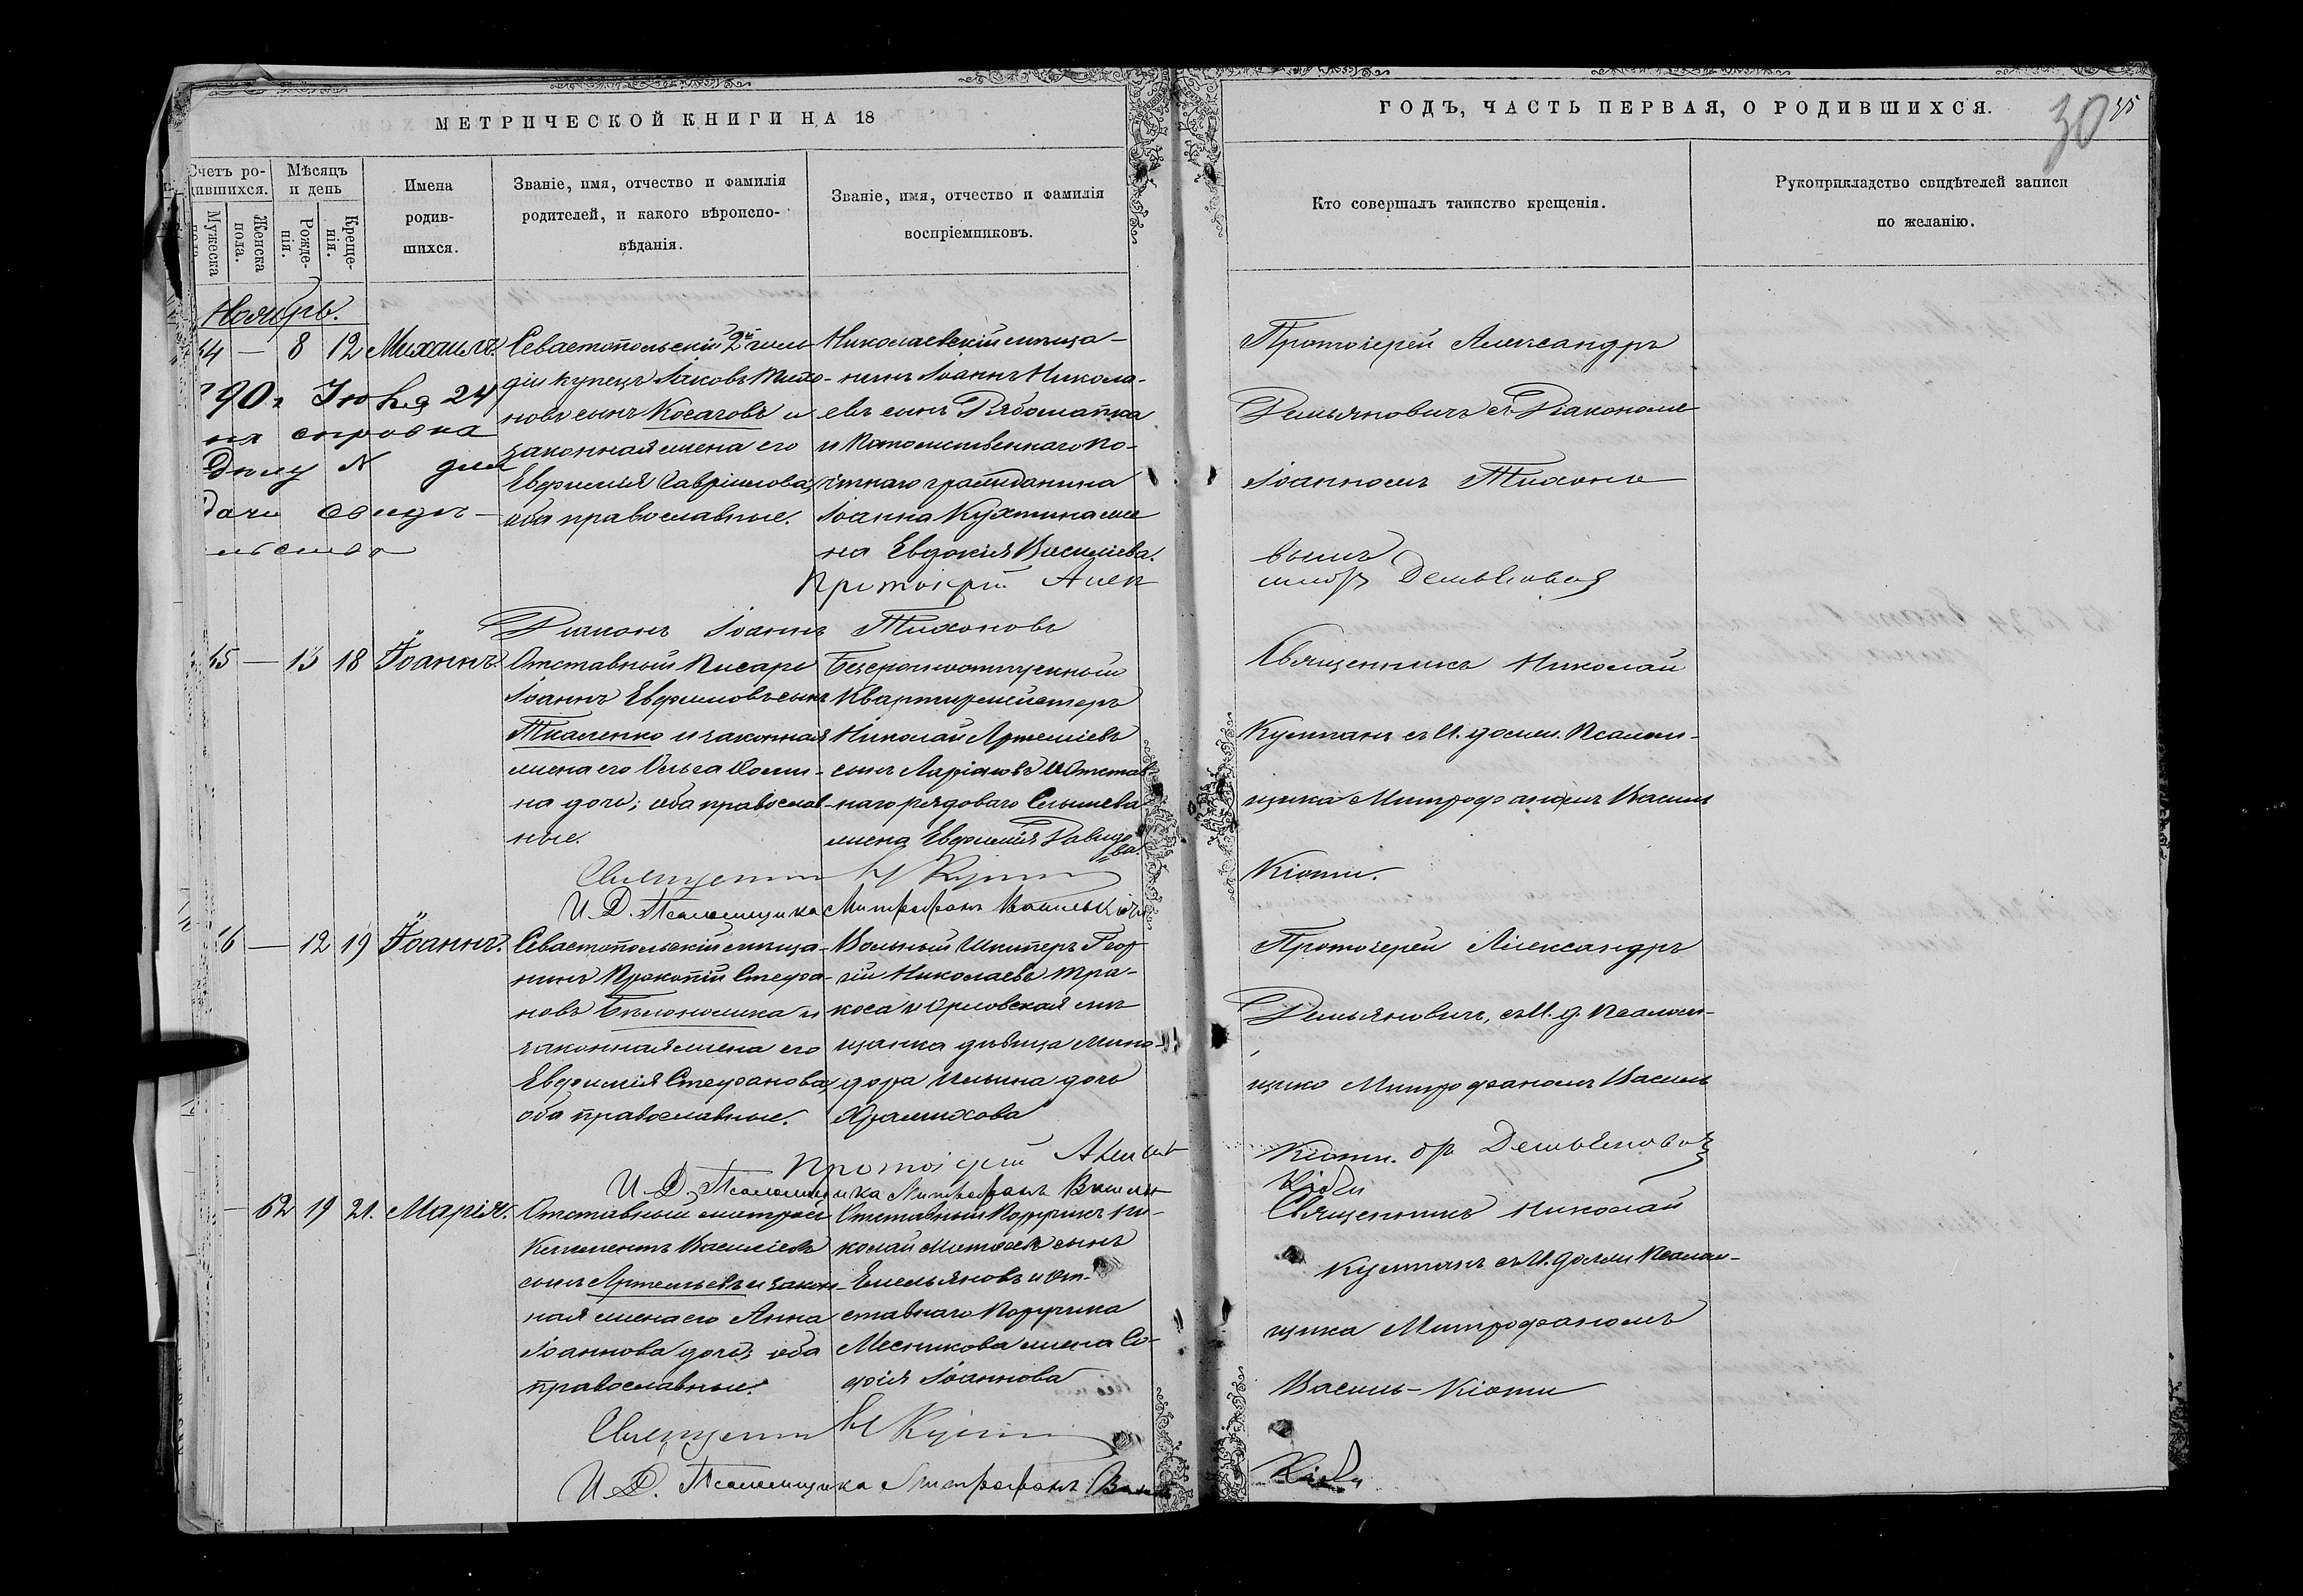 МЕТРИЧЕСКОЙ КНИГИ НА 18
ГОДЪ, ЧАСТЬ ПЕРВАЯ, О РОДИВШИХСЯ.
30
Счетъ ро-
дившихся.
Мужеска
Женска
пола.
Мѣсяцъ
и день
Рожде-
нія.
Креще-
нія.
Имена
родив-
шихся.
Званіе, имя, отчество и фамилія
родителей, и какого вѣроиспо-
вѣданія.
Званіе, имя, отчество и фамилія
воспріемниковъ.
Кто совершалъ таинство крещенія.
Рукоприкладство свидѣтелей записи
по желанію.
Ноябрь.
44 — 8 12 Михаилъ.
90 г Іюня 24
справка
дѣлу N
Севастопольскій 2й гиль-
діи купецъ Іаковъ Тихо-
новъ сынъ Косачовъ и
законная жена его
Евфимія Гавріилова,
оба православные.
Николаевскій мѣща-
нинъ Іоаннъ Никола-
евъ сынъ Рябошапка
и Потомственнаго по-
четнаго гражданина
Іоанна Кухтина же
на Евдокія Василіева.
Протоіерей Александръ
Демьяновичъ съ Діакономъ
Іоанномъ Тихоно
вымъ
Протоіерей Алек
Демьяновъ
Діаконъ Іоаннъ Тихоновъ
45 — 13 18 Іоаннъ.
Отставный Писарь
Іоаннъ Евфимовъ сынъ
Ткаленко и законная
жена его Ольга Косми-
на дочь; оба православ-
ные.
Безсрочноотпускной
Квартирмейстеръ
Николай Артеміевъ
сынъ Ларіановъ и Отстав
наго рядоваго
жена Евфимія Давидо
ва.
Священникъ Николай
Кушманъ съ И. долж. Псалом-
щика Митрофаномъ Василь
Кіоти.
И. Д. Псаломщика Митрофанъ Василькіоти
46 — 12 19 Іоаннъ.
Севастопольскій мѣща-
нинъ Прокопій Стефа-
новъ Бѣлоножка и
законная жена его
Евфимія Стефанова,
оба православные.
Вольный Шкиперъ Геор
гій Николаевъ Тра-
коса и Орловская мѣ
щанка дѣвица Мино-
дора Ильина дочь
Протоіерей Александръ
Демьяновичъ, съ И. д. Псалом-
щика Митрофаномъ Василь
Кіоти.
Протоіерей Алексан
дръ Демьяновъ
И. Д. Псаломщика Митрофанъ Василь
Кіоти
— 62 19 21. Марія.
Отставный матросъ
Климентъ Василіевъ
сынъ Артемьевъ и закон-
ная жена его Анна
Іоаннова дочь; оба
православные.
Отставный Поручикъ Ни-
колай Матвѣевъ сынъ
Емельяновъ и От-
ставнаго Поручика
Месникова жена Со-
фія Іоаннова
Священникъ Николай
Кушманъ съ И. долж. Псалом-
щика Митрофаномъ
Василь-Кіоти
И. Д. Псаломщика Митрофанъ Василь
Кіоти